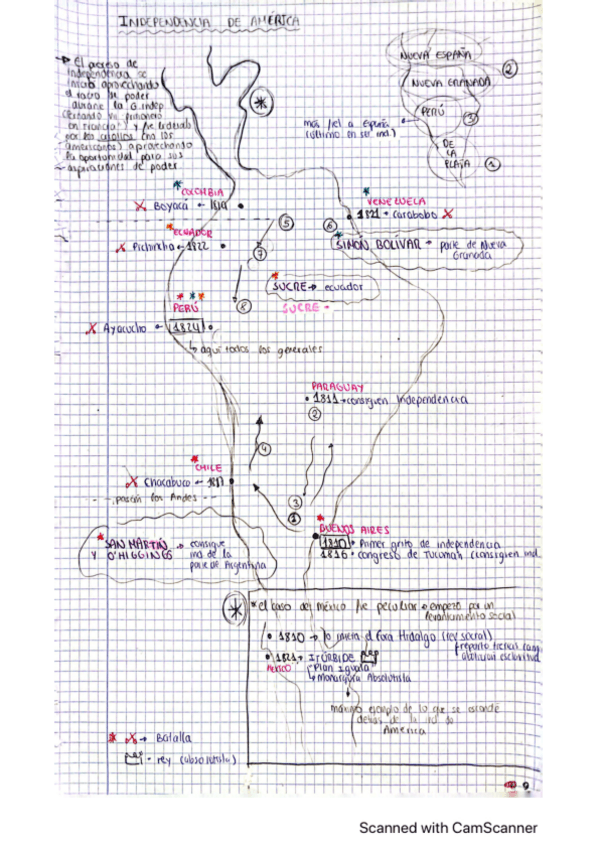 INDEPENDENCIA DE AMÉRICA
El proceso de
independencia se
inicia aprovechando
el vacío de poder
durante la G. indep
(Fernando VII prisionero
en Francia) y fue liderado
por los criollos (no los
americanos) aprovechando
la oportunidad para sus
aspiraciones de poder
NUEVA ESPAÑA
NUEVA GRANADA
②
PERÚ
③
más fiel a España
(último en ser ind.)
DE
LA
PLATA
①
COLOMBIA
X Boyacá 1819
VENEZUELA
1821 Carabobo X
⑤
⑥
ECUADOR
X Pichincha 1822
SIMÓN BOLÍVAR → parte de Nueva
Granada
⑦
SUCRE → ecuador
SUCRE
⑧
PERÚ
X Ayacucho 1824
aquí todos los generales
PARAGUAY
1811 → consiguen independencia
②
④
CHILE
X Chacabuco 1817
- - pasan los Andes - -
③
①
BUENOS AIRES
1810 Primer grito de independencia
1816 congreso de Tucumán (consiguen ind.
SAN MARTÍN
Y O'HIGGINGS
→ consigue
ind de la
parte de Argentina
* el caso de México fue peculiar → empezó por un
levantamiento social
1810 → lo inicia el cura Hidalgo (rev social)
abolición esclavitud
1821 → ITÚRBIDE
MÉXICO
Plan Iguala
Monarquía Absolutista
máximo ejemplo de lo que se esconde
detrás de la ind de
América
* X → Batalla
rey (absolutista)
9
Scanned with CamScanner